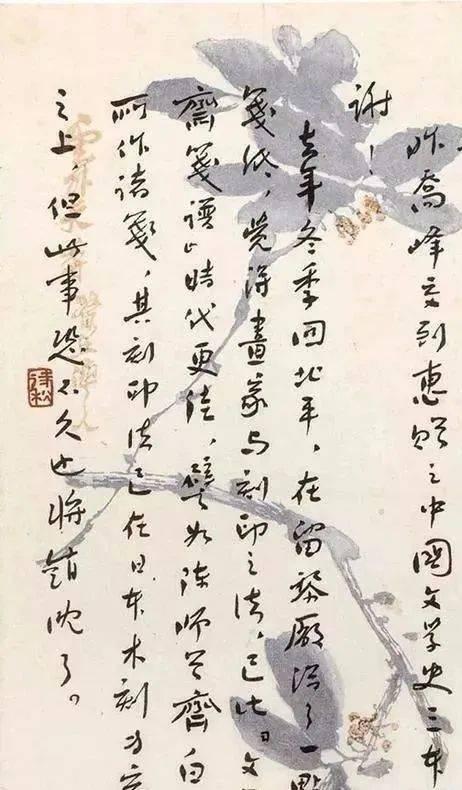 昨喬峰交到惠贈之中國文学史三本
謝！
去年冬季回北平，在留黎廠得了一點
箋紙，覺得畫家与刻印之法，已比文
齋箋譜時代更佳，譬如陈師曾齊白
所作諸箋，其刻印法已在日本木刻
之上，但此事恐不久也將銷沈了。